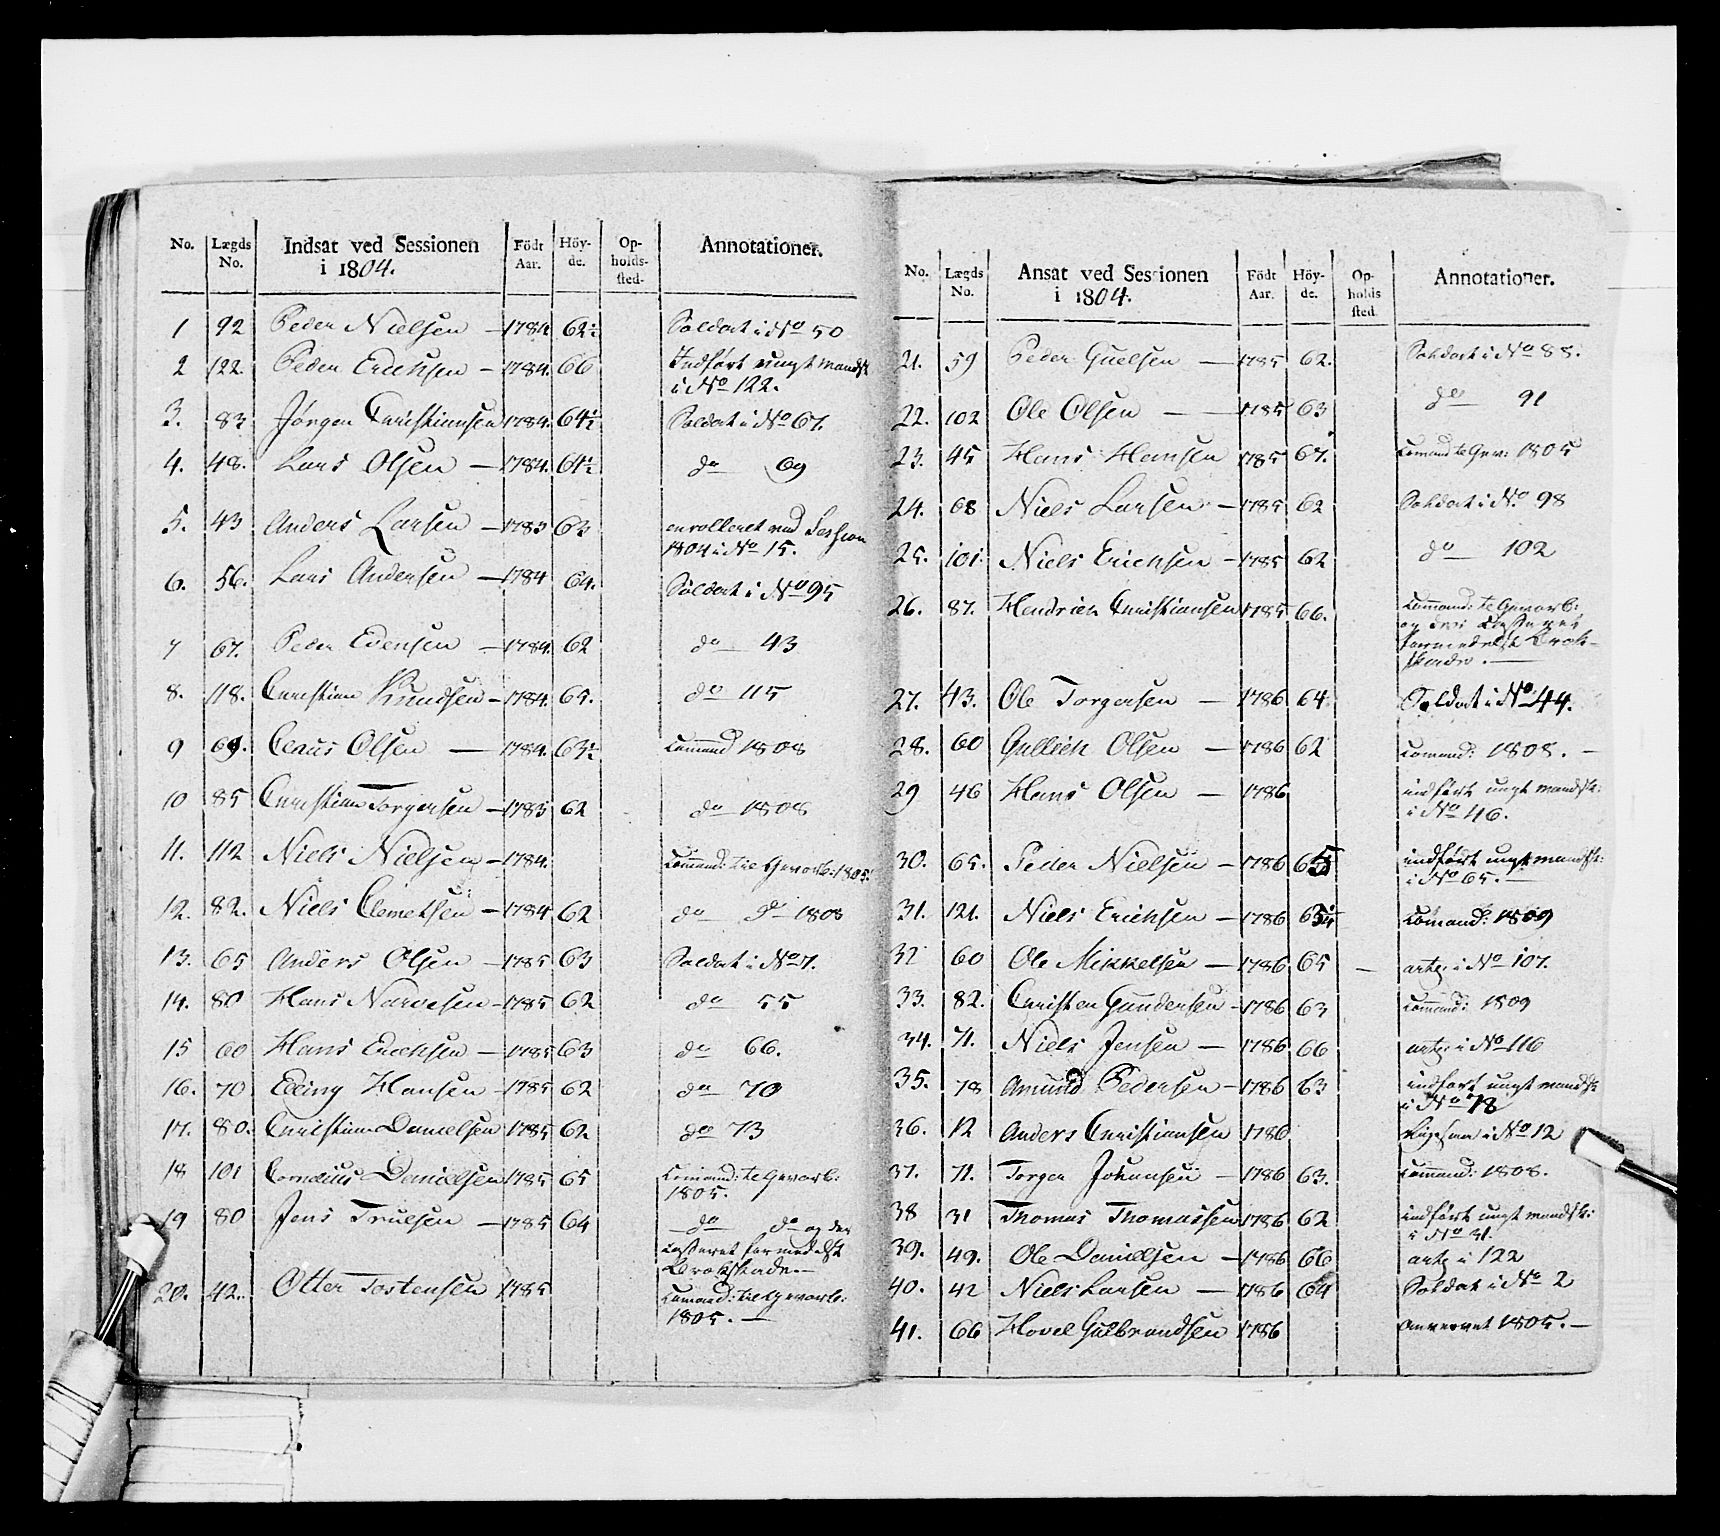 No. Lægds No. Indsat ved Sessionen i 1804. Födt Aar. Höy-de. Op-holds-sted. Annotationer.
1 92 Peder Nielsen — 1784 62½ Soldat i No 50
2 122. Peder Erichsen — 1784. 66 Indført ungt Mandsk
i No 122.
3. 83 Jørgen Christiansen 1784. 64½ Soldat i No 67.
4. 48. Lars Olsen — 1784. 64½ do 69
5. 43 Anders Larsen — 1783 63 enrolleret ved Session
1804 i No 15.
6. 56. Lars Andersen — 1784 64. Soldat i No 95
7 67. Peder Evensen — 1784. 62 do 43
8. 118. Christian Knudsen — 1784. 65. do 115
9 69. Claus Olsen — 1784. 63½ Command 1808
10 85 Christian Torgersen — 1783 62 do 1808
11. 112 Niels Nielsen — 1784. Command: til Gevorb: 1805.
12. 82. Niels Clemetsen — 1784 62 do do 1808
13. 65 Anders Olsen — 1785 63 Soldat i No 7.
14. 80 Hans Narvesen — 1785 62 do 55
15 60 Hans Erichsen — 1785 63 do 66.
16. 70 Elling Hansen — 1785 62 do 70
17. 80. Christian Danielsen 1785 62 do 73
18 101 Cornelius Danielsen 1785 65 Comand: til Gevorb:
1805.
19 80 Jens Truelsen — 1785 64 do do og der
casseret formedelst
Brokskade. —
20. 42. Otter Tostensen 1785 Comand: til Gevorb:
1805. —
No. Lægds No. Ansat ved Sessionen i 1804. Födt Aar. Höy-de. Op-holds sted. Annotationer.
21. 59 Peder Guelsen — 1785 62. Soldat i No 88.
22. 102 Ole Olsen — 1785 63 do 91
23. 45 Hans Hansen 1785 67. Comand til Gev: 1805
24. 68 Niels Larsen — 1785 62 Soldat i No 98
25. 101. Niels Erichsen — 1785 62 do 102
26. 87. Hendrich Christiansen 1785 66. Command: til Gevorb:
og der Casseret
formedelst Brok-
skade. —
27. 43. Ole Torgersen — 1786 64 Soldat i No 44.
28. 60 Gullich Olsen — 1786 62 Comand: 1808. —
29 46 Hans Olsen — 1786 indført ungt mandsk:
i No 46.
30. 65. Peder Nielsen — 1786 65 indført ungt mandsk:
i No 65. —
31. 121. Niels Erichsen — 1786 Comand: 1809
32 60 Ole Mikkelsen — 1786 65 — artz. i No 107.
33. 82. Christen Gundersen — 1786 63 Command: 1809
34. 71. Niels Jensen — 1786 66 artz i No 116
35. 78 Amund Pedersen — 1786 63 indført ungt mandsk
i No 78
36. 12 Anders Christiansen 1786 i No 12
37. 71. Torger Johansen — 1786 63. Command: 1808.
38 31 Thomas Thomassen 1786 62 indført ungt mandsk:
i No 31.
39. 49. Ole Danielsen — 1786 66 artz i 122
40. 42 Niels Larsen — 1786 64 Soldat i No 2
41. 66 Hovel Gulbrandsen 1786 1805. —